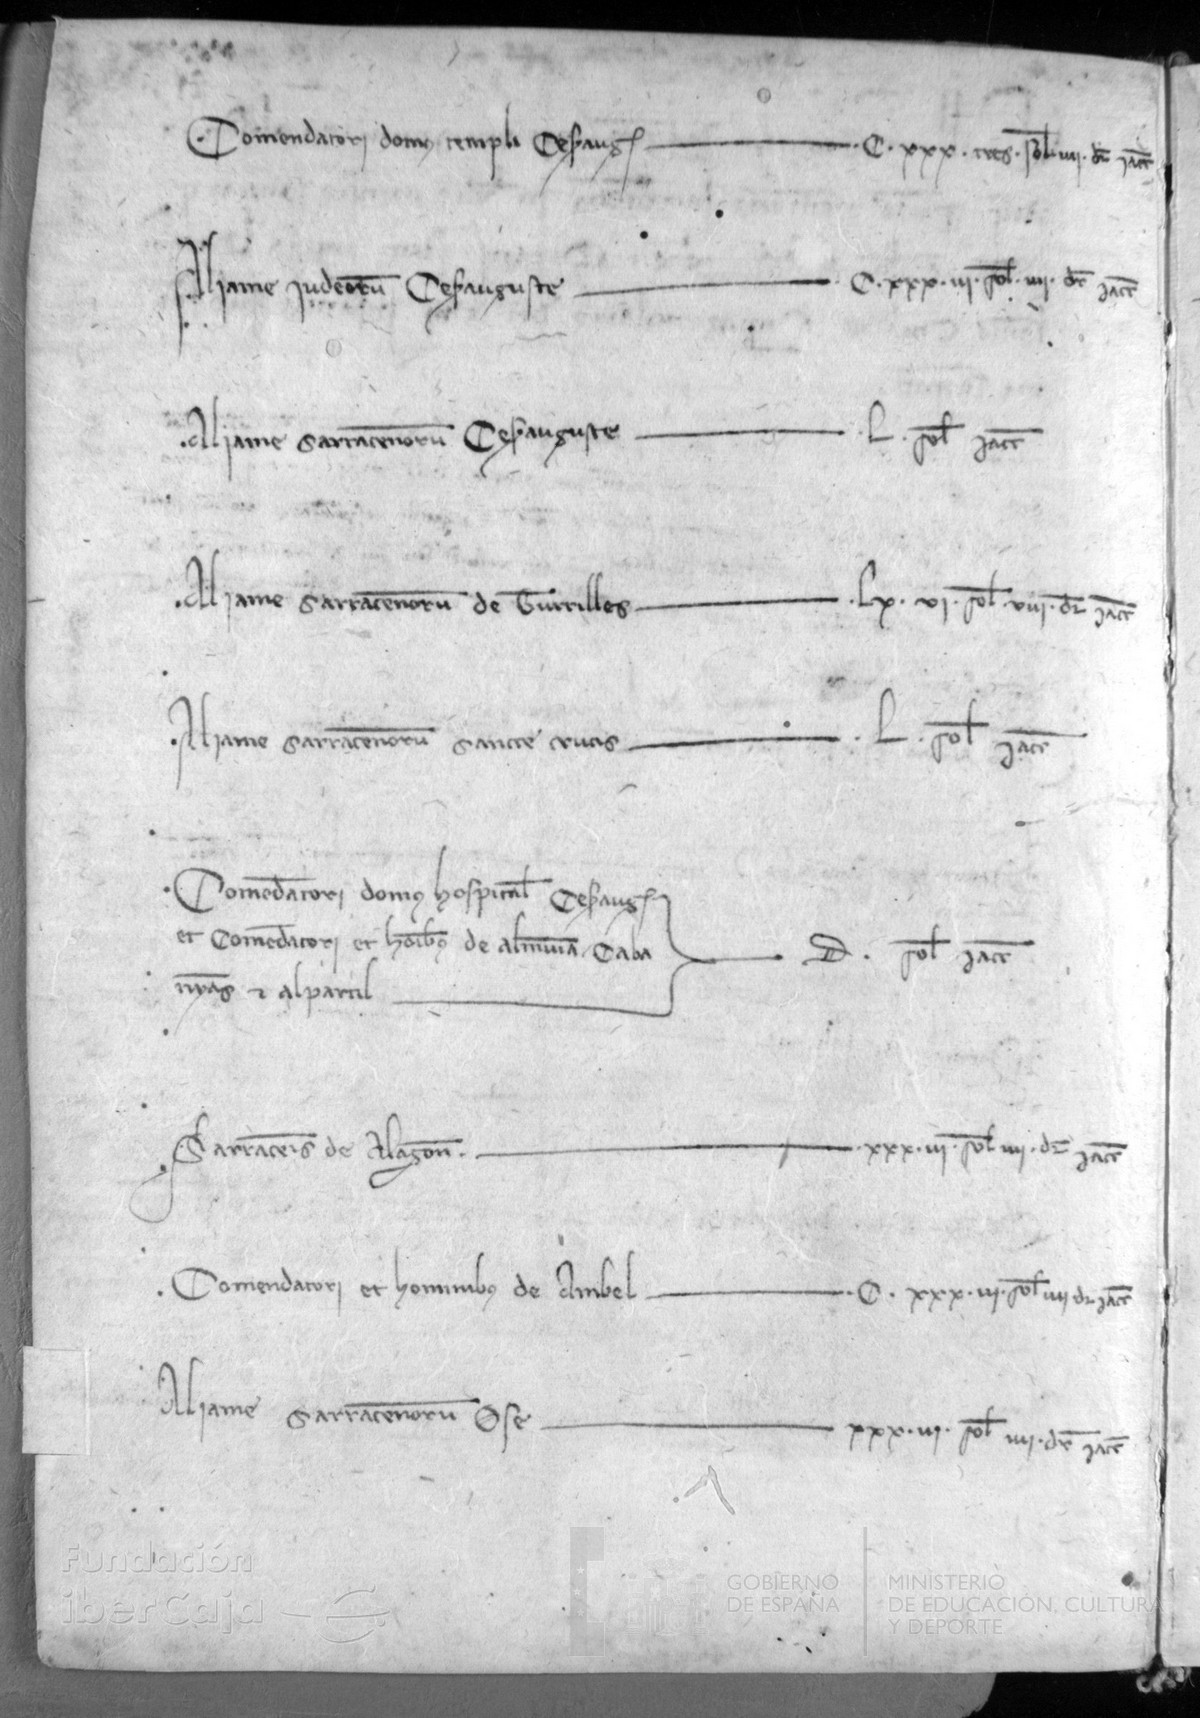 Comendatori domus templi Cesaraug C. xxx. tres. sol. iiii. dr iacc
Aliame iudeorum Cesarauguste C. xxx. iii. sol. iiii. dr iacc
Aliame sarracenorum Cesarauguste L. sol iacc
Aliame sarracenorum de Turrilles Lx. vi. sol. viii. dr iacc
Aliame sarracenorum sancte crucis L. sol iacc
Comendatori domus hospital Cesaraug
et Comendatori et hoibus de almunia Caba D. sol iacc
nyas et alpartil
Sarracenis de Alagon. xxx. iii. sol. iiii. dr iacc
Comendatori et hominibus de Ambel C. xxx. iii. sol. iiii dr iacc
Aliame sarracenorum Ose xxx. iii. sol iiii. dr iacc
Fundación
iberCaja
GOBIERNO
DE ESPAÑA
MINISTERIO
DE EDUCACIÓN, CULTURA
Y DEPORTE